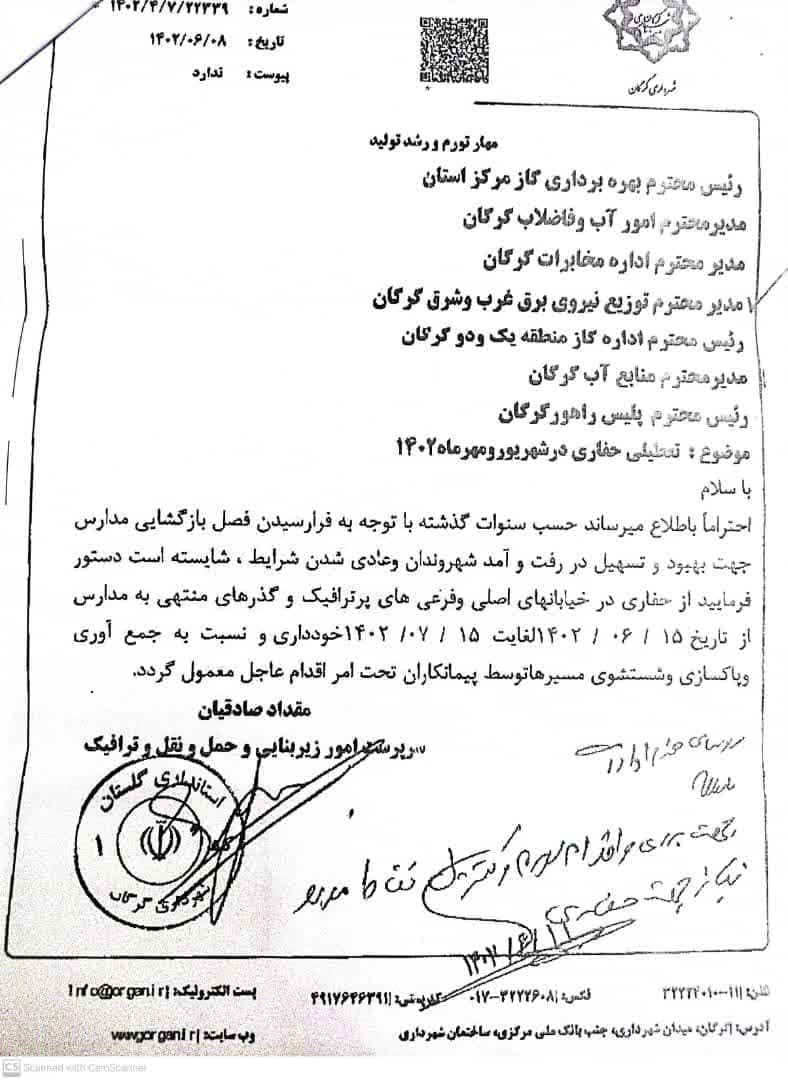 شماره: ۱۴۰۲/۴/۷/۲۲۳۳۹
تاریخ: ۱۴۰۲/۰۶/۰۸
پیوست: ندارد
شهرداری گرگان
مهار تورم و رشد تولید
رئیس محترم بهره برداری گاز مرکز استان
مدیرمحترم امور آب وفاضلاب گرگان
مدیر محترم اداره مخابرات گرگان
مدیر محترم توزیع نیروی برق غرب وشرق گرگان
رئیس محترم اداره گاز منطقه یک ودو گرگان
مدیرمحترم منابع آب گرگان
رئیس محترم پلیس راهورگرگان
موضوع : تعطیلی حفاری درشهریورومهرماه۱۴۰۲
با سلام
احتراماً باطلاع میرساند حسب سنوات گذشته با توجه به فرارسیدن فصل بازگشایی مدارس
جهت بهبود و تسهیل در رفت و آمد شهروندان وعادی شدن شرایط ، شایسته است دستور
فرمایید از حفاری در خیابانهای اصلی وفرعی های پرترافیک و گذرهای منتهی به مدارس
از تاریخ ۱۵ / ۰۶ / ۱۴۰۲لغایت ۱۵ / ۰۷ / ۱۴۰۲خودداری و نسبت به جمع آوری
وپاکسازی وشستشوی مسیرهاتوسط پیمانکاران تحت امر اقدام عاجل معمول گردد.
مقداد صادقیان
سرپرست امور زیربنایی و حمل و نقل و ترافیک
استانداری گلستان
۱
شهرداری گرگان
جهت
تلفن: ۱۱-۳۲۲۲۴۰۱۰ فکس: ۰۱۷-۳۲۲۲۶۰۸ کدپستی: ۴۹۱۷۶۴۶۳۹۱ پست الکترونیک: Info@gorgan.ir
آدرس: گرگان، میدان شهرداری، جنب بانک ملی مرکزی، ساختمان شهرداری وب سایت: www.gorgan.ir
CS Scanned with CamScanner